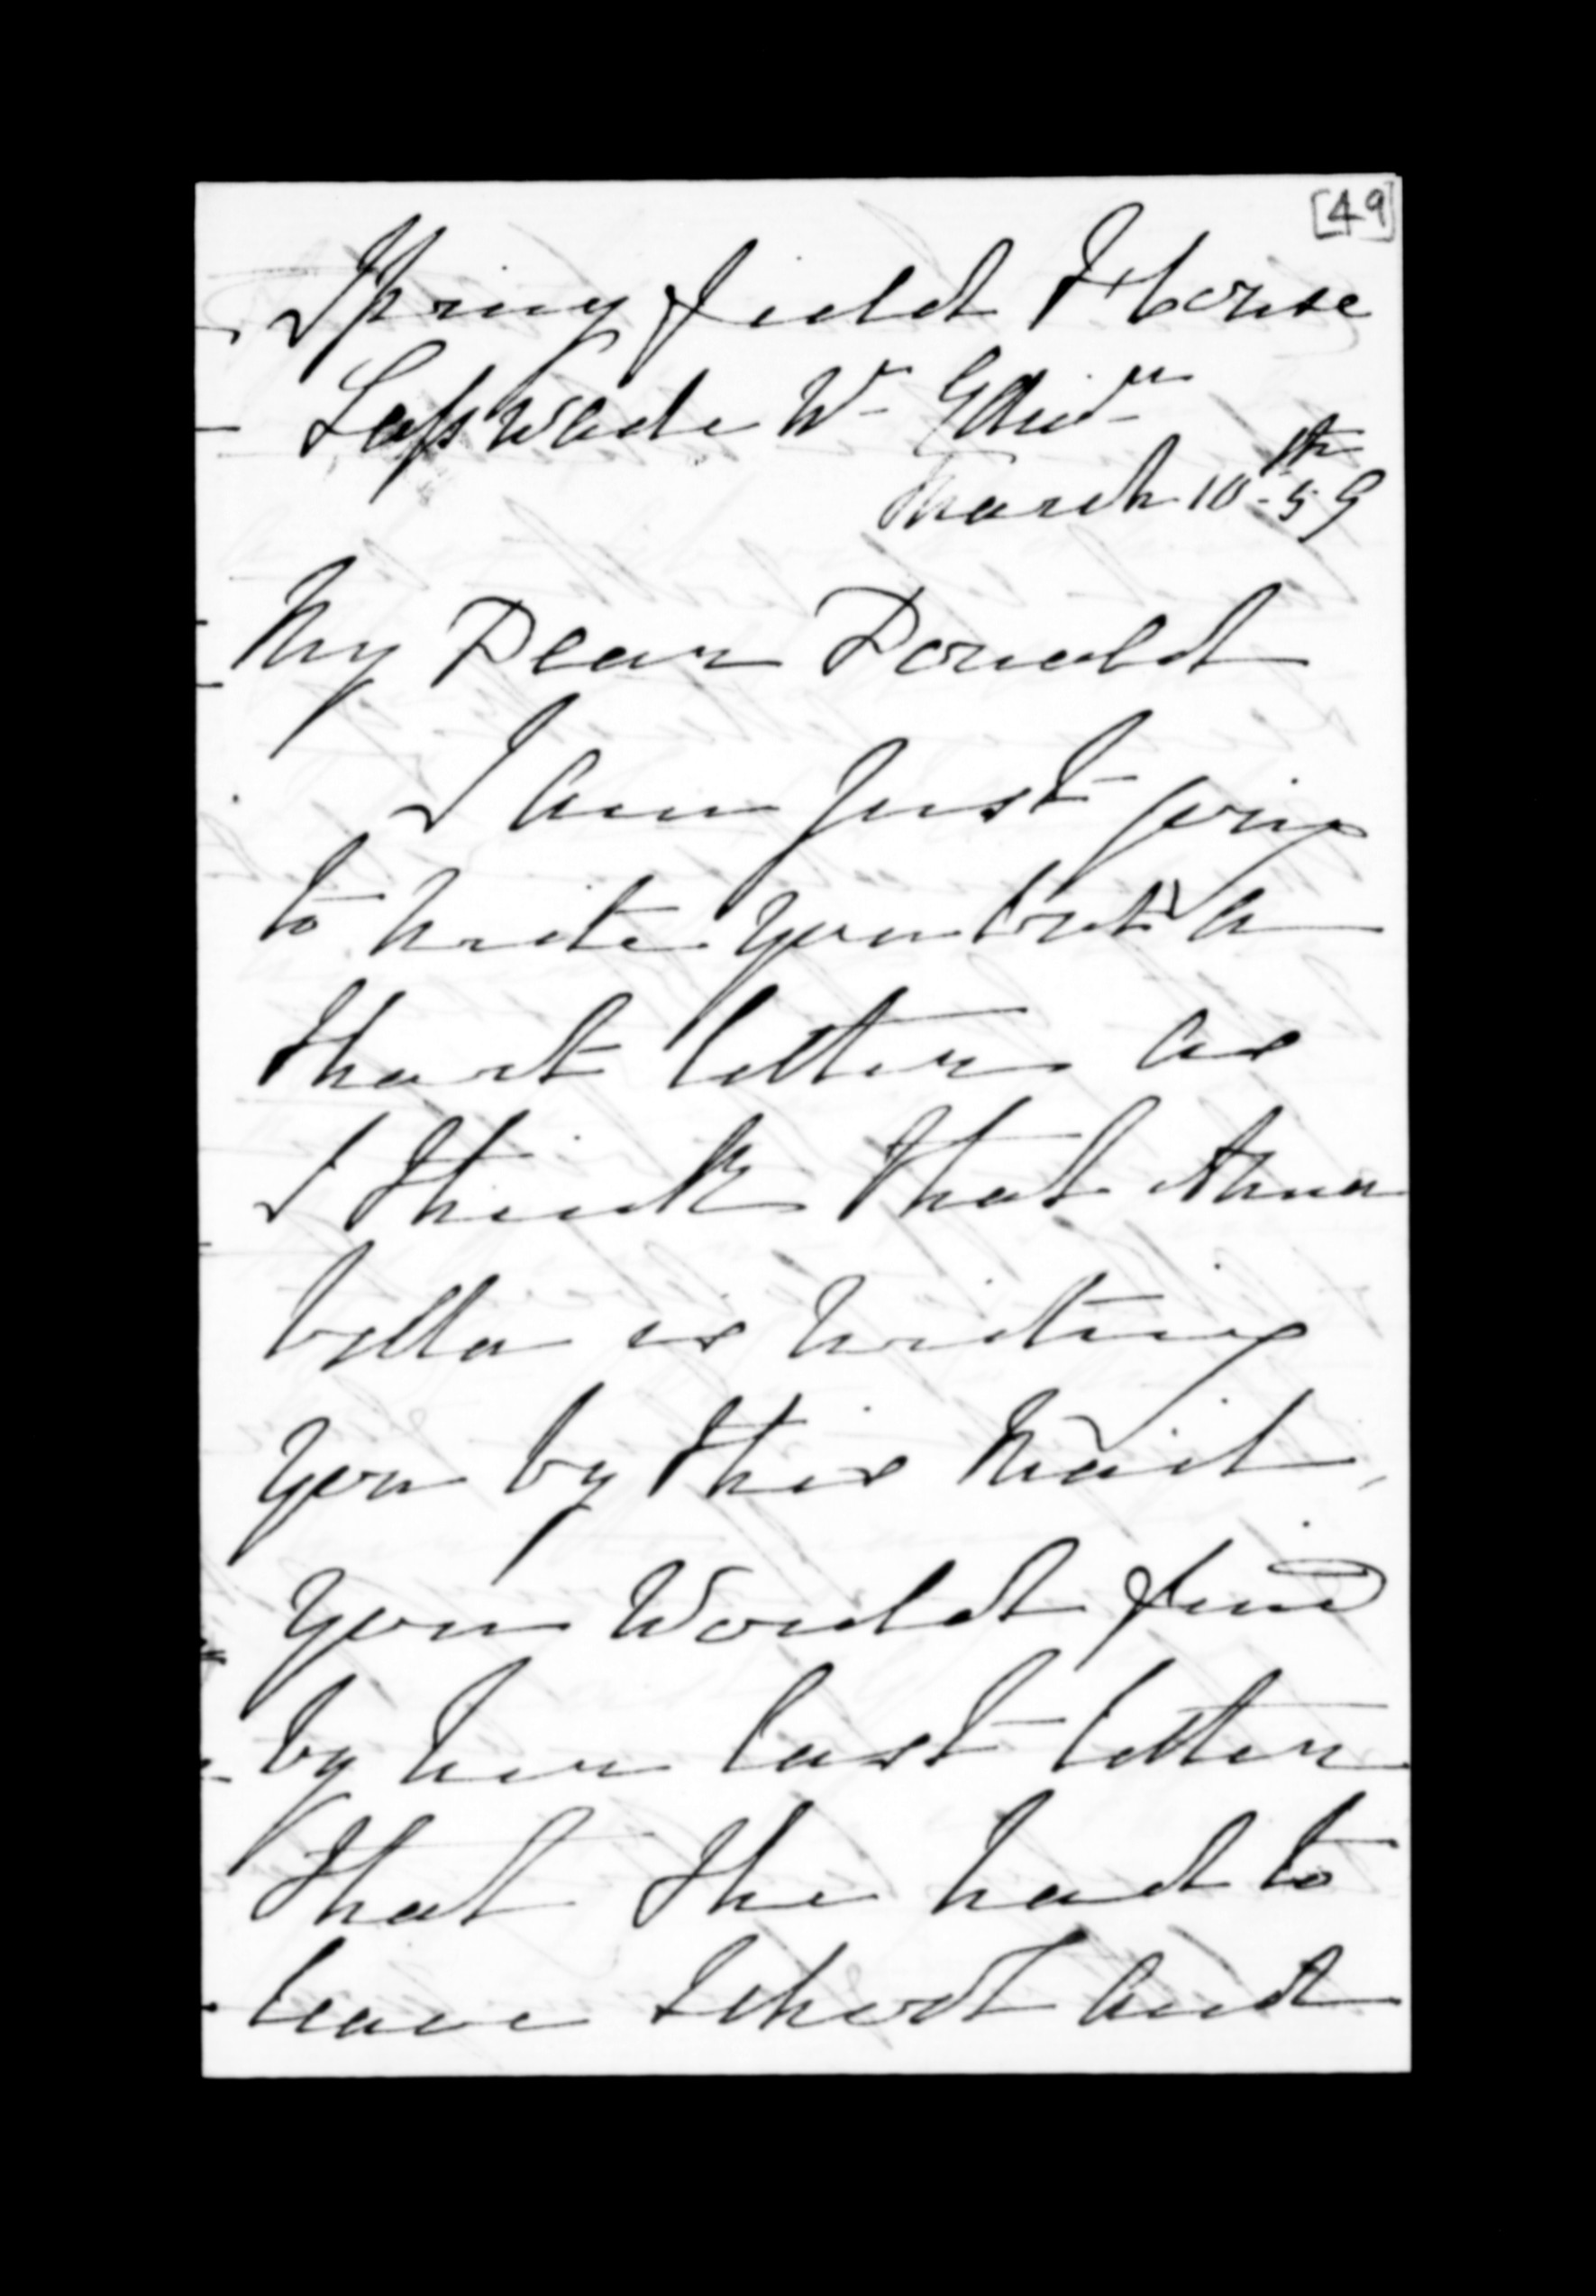 [49]
Springfield House
Lasswade Nr Edinr
March 10th - 59
My Dear Donald
I am just going
to write you but a
short letter as
I think that Anna
bella is writing
you by this Mail,
you would find
by her last letter
that she had to
leave School and